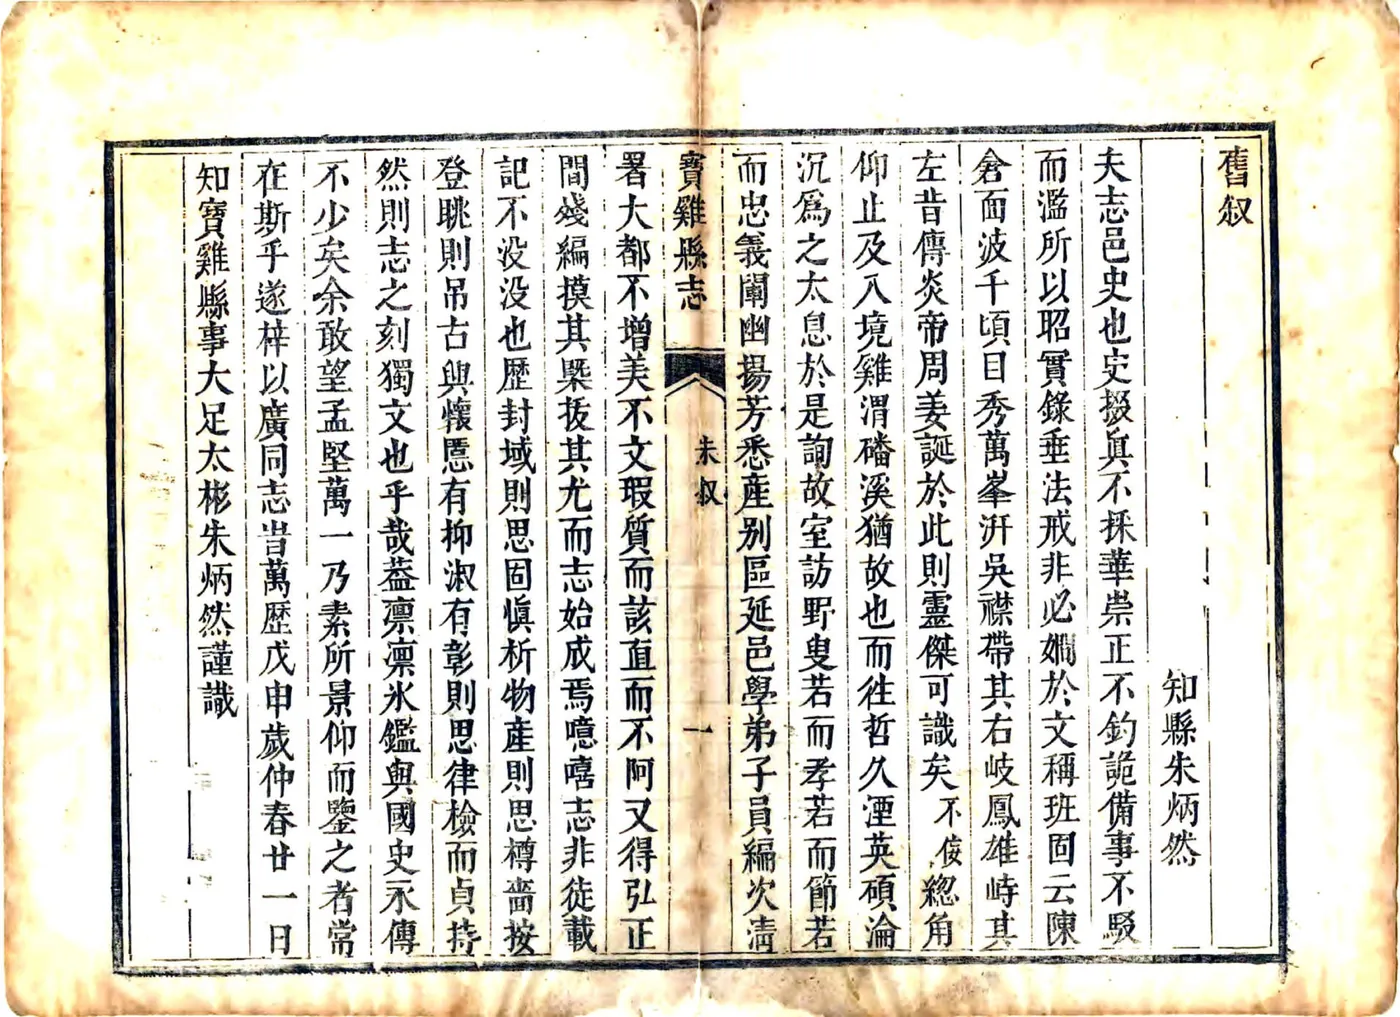 舊叙
知縣朱炳然
夫志邑史也史掇眞不採華崇正不釣詭備事不駁
而濫所以昭實錄垂法戒非必嫺於文稱班固云陳
倉面波千頃目秀萬峯汧吳襟帶其右岐鳳雄峙其
左昔傳炎帝周姜誕於此則靈傑可識矣不佞總角
仰止及入境雞渭磻溪猶故也而徃哲久湮英碩淪
沉爲之太息於是詢故室訪野叟若而孝若而節若
而忠義闡幽揚芳悉産别區延邑學弟子員編次淸
寶雞縣志
朱叙
一
署大都不增美不文瑕質而該直而不阿又得弘正
間殘編摸其槩抜其尤而志始成焉噫嘻志非徒載
記不没没也歷封域則思固愼析物產則思樽嗇按
登眺則吊古與懷慝有抑淑有彰則思律檢而貞持
然則志之刻獨文也乎哉葢凛凛氷鑑與國史永傳
不少矣余敢望孟堅萬一乃素所景仰而鑒之者常
在斯乎遂梓以廣同志旹萬歷戊申歲仲春廿一日
知寶雞縣事大足太彬朱炳然謹識